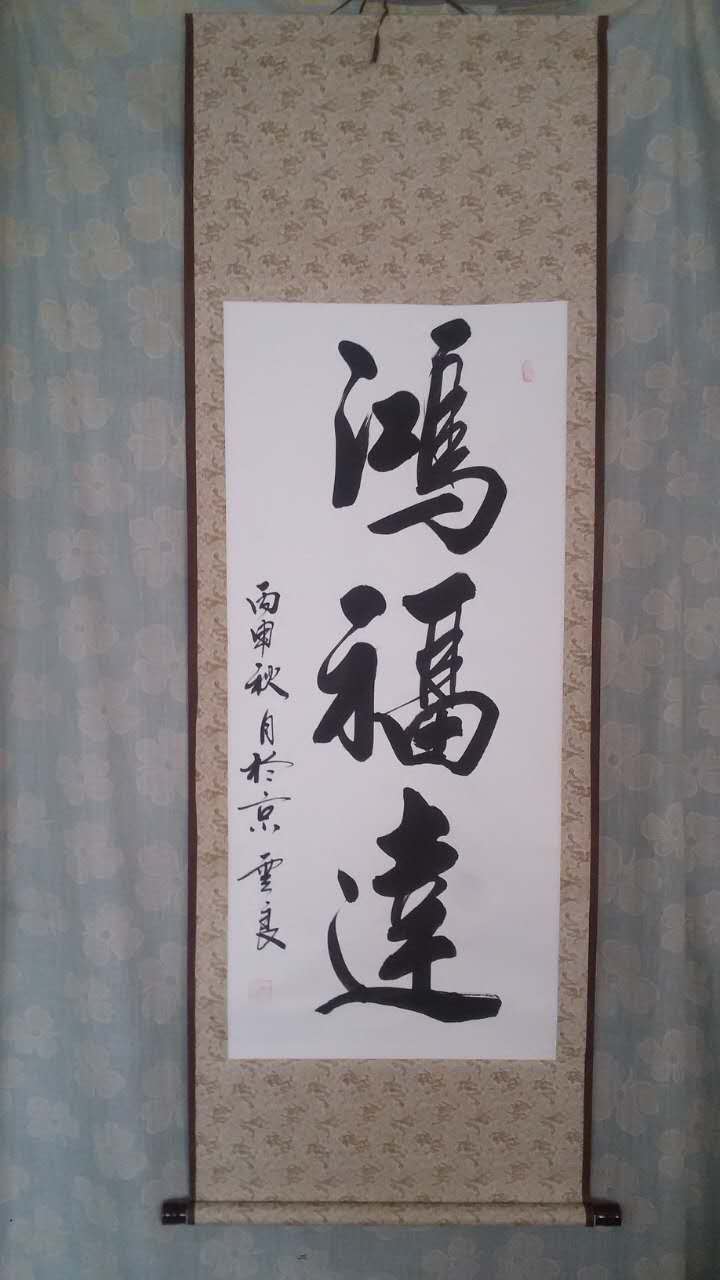 鴻福達
丙申秋月於京 雲良